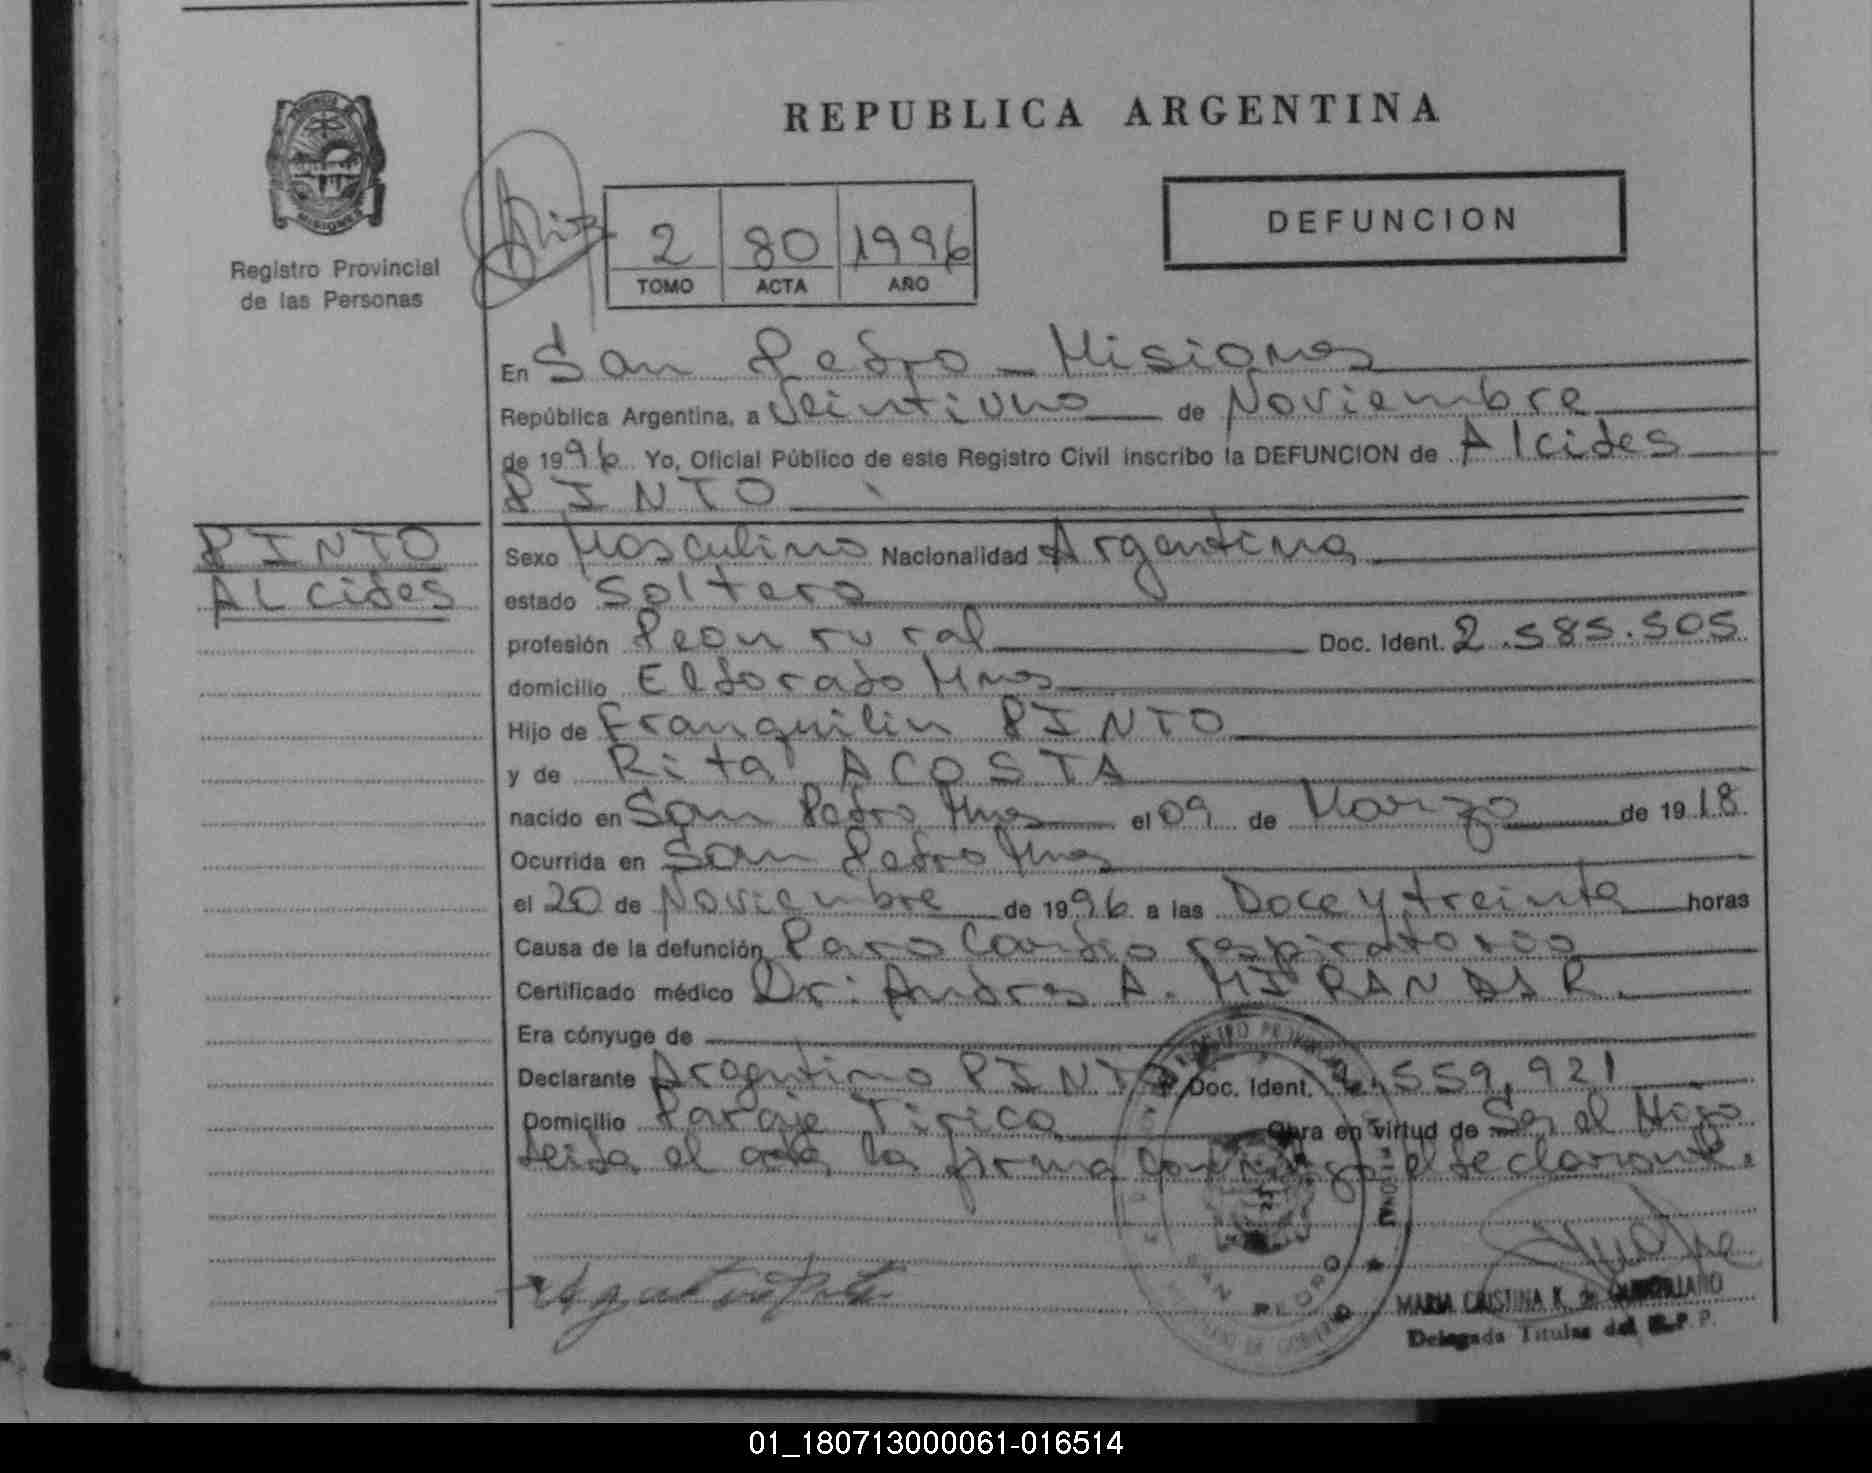 REPUBLICA ARGENTINA
DEFUNCION
Registro Provincial
de las Personas
2 80 1996
TOMO ACTA AÑO
En San Pedro - Misiones
República Argentina, a Veintiuno de Noviembre
de 1996 Yo, Oficial Público de este Registro Civil inscribo la DEFUNCION de Alcides
PINTO
PINTO
ALcides
Sexo Masculino Nacionalidad Argentina
estado Soltero
profesión Peon rural Doc. Ident. 2.585.505
domicilio Eldorado Mnes
Hijo de Franquilin PINTO
y de Rita ACOSTA
nacido en San Pedro Mnes el 09 de Marzo de 1918
Ocurrida en San Pedro Mnes
el 20 de Noviembre de 1996 a las Doce y treinta horas
Causa de la defunción Paro Cardio respiratorio
Certificado médico Dr: Andres A. MIRANDA R.
Era cónyuge de
Declarante Argentino PINTO Doc. Ident. 559.921
Domicilio Paraje Tirica Obra en virtud de Ser el Hijo
Leida el acta, la firma conmigo el declarante.
REGISTRO PROVINCIAL
SAN PEDRO
MARIA CRISTINA K. de
Delegada Titular del R.P.P.
01_180713000061-016514